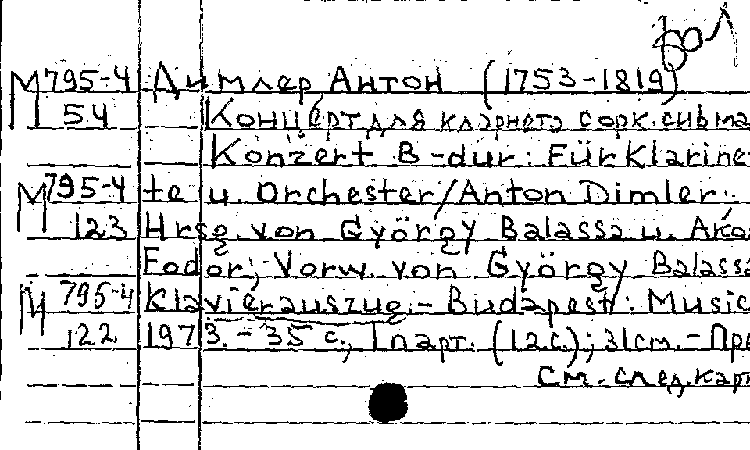 М 795-4 Димлер, Антон (1753-1819)
54 Концерт для кларнета с орк. сиb ма
Konzert B-dur: Für Klarine-
М 795-4 te u. Orchester/Anton Dimler:
123 Hrsg. von György Balassa u. Ako
Fodor; Vorw. von György Balass
М 795-4 Klavierauszug. - Budapest: Music
122 1973. - 35 с., 1 парт. (12с.); 31см. - Пре
См. след. карт